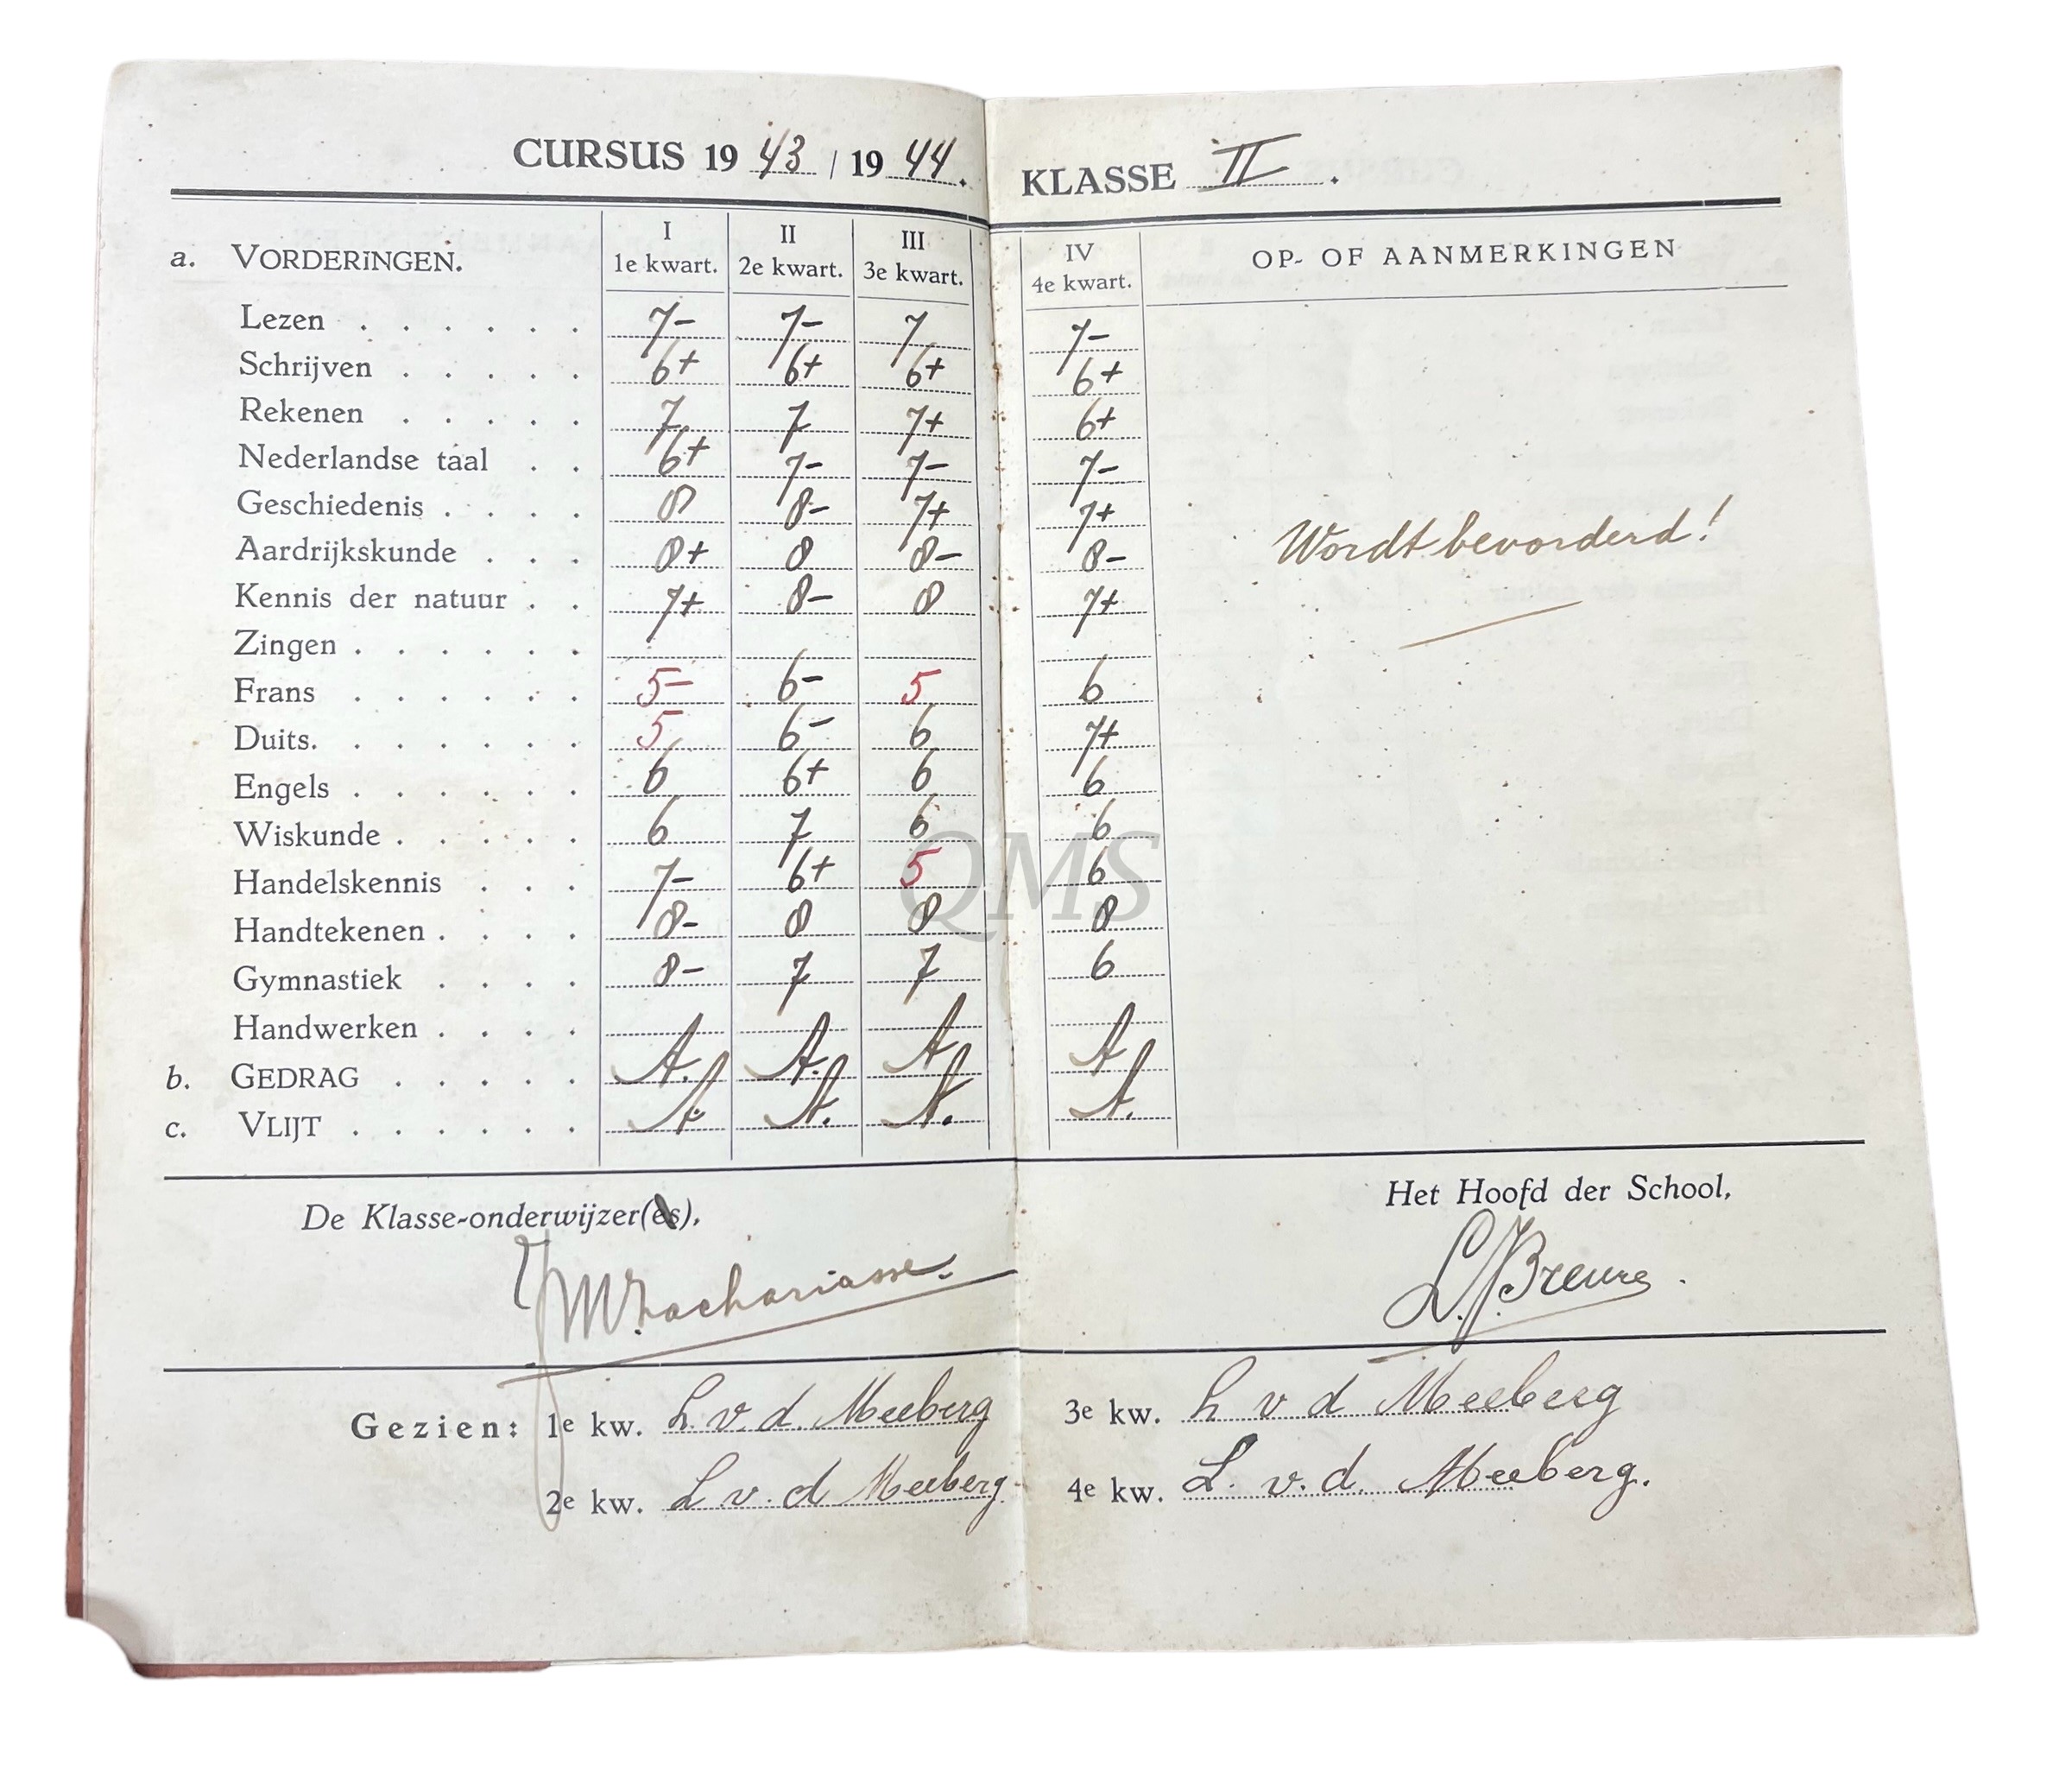 CURSUS 19 43 / 19 44. KLASSE II.
a. VORDERINGEN. I 1e kwart. II 2e kwart. III 3e kwart. IV 4e kwart. OP- OF AANMERKINGEN
Lezen . . . . . . 7- 7- 7 7-
Schrijven . . . . . 6+ 6+ 6+ 6+
Rekenen . . . . . 7 7 7+ 6+
Nederlandse taal . . 6+ 7- 7- 7-
Geschiedenis . . . . 8 8- 7+ 7+
Wordt bevorderd!
Aardrijkskunde . . . 8+ 8 8- 8-
Kennis der natuur . . 7+ 8- 8 7+
Zingen . . . . . .
Frans . . . . . . 5- 6- 5 6
Duits. . . . . . . 5 6- 6 7+
Engels . . . . . . 6 6+ 6 6
Wiskunde . . . . . 6 7 6 6
Handelskennis . . . 7- 6+ 5 6
QMS
Handtekenen . . . . 8- 8 8 8
Gymnastiek . . . . 8- 7 7 6
Handwerken . . . .
b. GEDRAG . . . . . A. A. A A
c. VLIJT . . . . . . A. A. A. A.
De Klasse-onderwijzer(es), Het Hoofd der School,
Zachariasse. L.J. Breure.
Gezien: 1e kw. L. v. d. Meeberg 3e kw. L v d Meeberg
2e kw. L v. d Meeberg 4e kw. L. v. d. Meeberg.